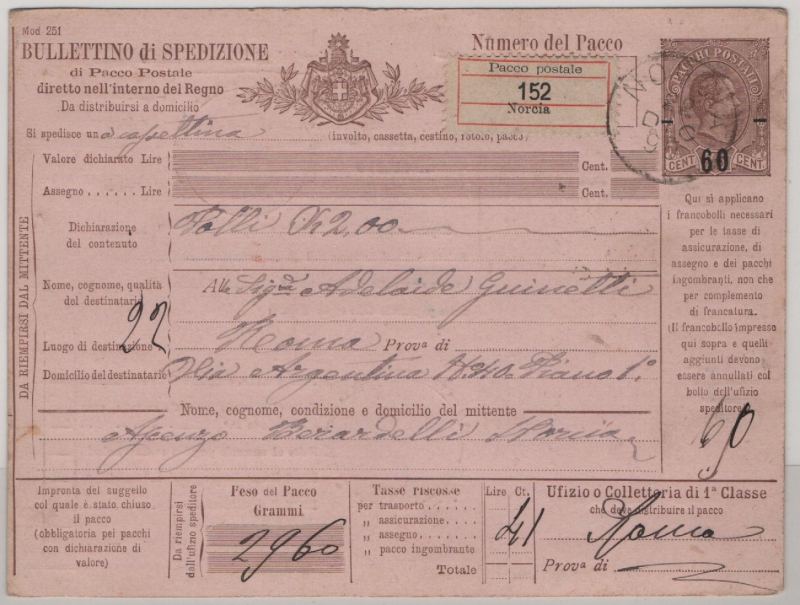 Mod 251
BULLETTINO di SPEDIZIONE
di Pacco Postale
diretto nell'interno del Regno
Da distribuirsi a domicilio
Numero del Pacco
Pacco postale
152
Norcia
PACCHI POSTALI
CENT. 60 CENT.
Si spedisce una cassettina (involto, cassetta, cestino, rotolo, pacco)
Valore dichiarato Lire Cent.
Assegno . . . . . . Lire Cent.
DA RIEMPIRSI DAL MITTENTE
Dichiarazione
del contenuto
Polli Ch 2,00
Nome, cognome, qualità
del destinatario
Alla Sigra Adelaide Guinelli
22
Luogo di destinazione Roma Prova di
Domicilio del destinatario Via Argentina N. 40 Piano 1º
Nome, cognome, condizione e domicilio del mittente
Berardelli Norcia
Qui si applicano
i francobolli necessari
per le tasse di
assicurazione, di
assegno e dei pacchi
ingombranti, non che
per complemento
di francatura.
(Il francobollo impresso
qui sopra e quelli
aggiunti devono
essere annullati col
bollo dell'ufizio
speditore)
60
Impronta del suggello
col quale è stato chiuso
il pacco
(obbligatoria pei pacchi
con dichiarazione di
valore)
Da riempirsi
dall'ufizio speditore
Peso del Pacco
Grammi
2960
Tasse riscosse Lire Ct.
per trasporto . . . . . .
„ assicurazione. . . .
„ assegno . . . . . . .
„ pacco ingombrante
Totale
41
Ufizio o Collettoria di 1ª Classe
che deve distribuire il pacco
Roma
Prova di